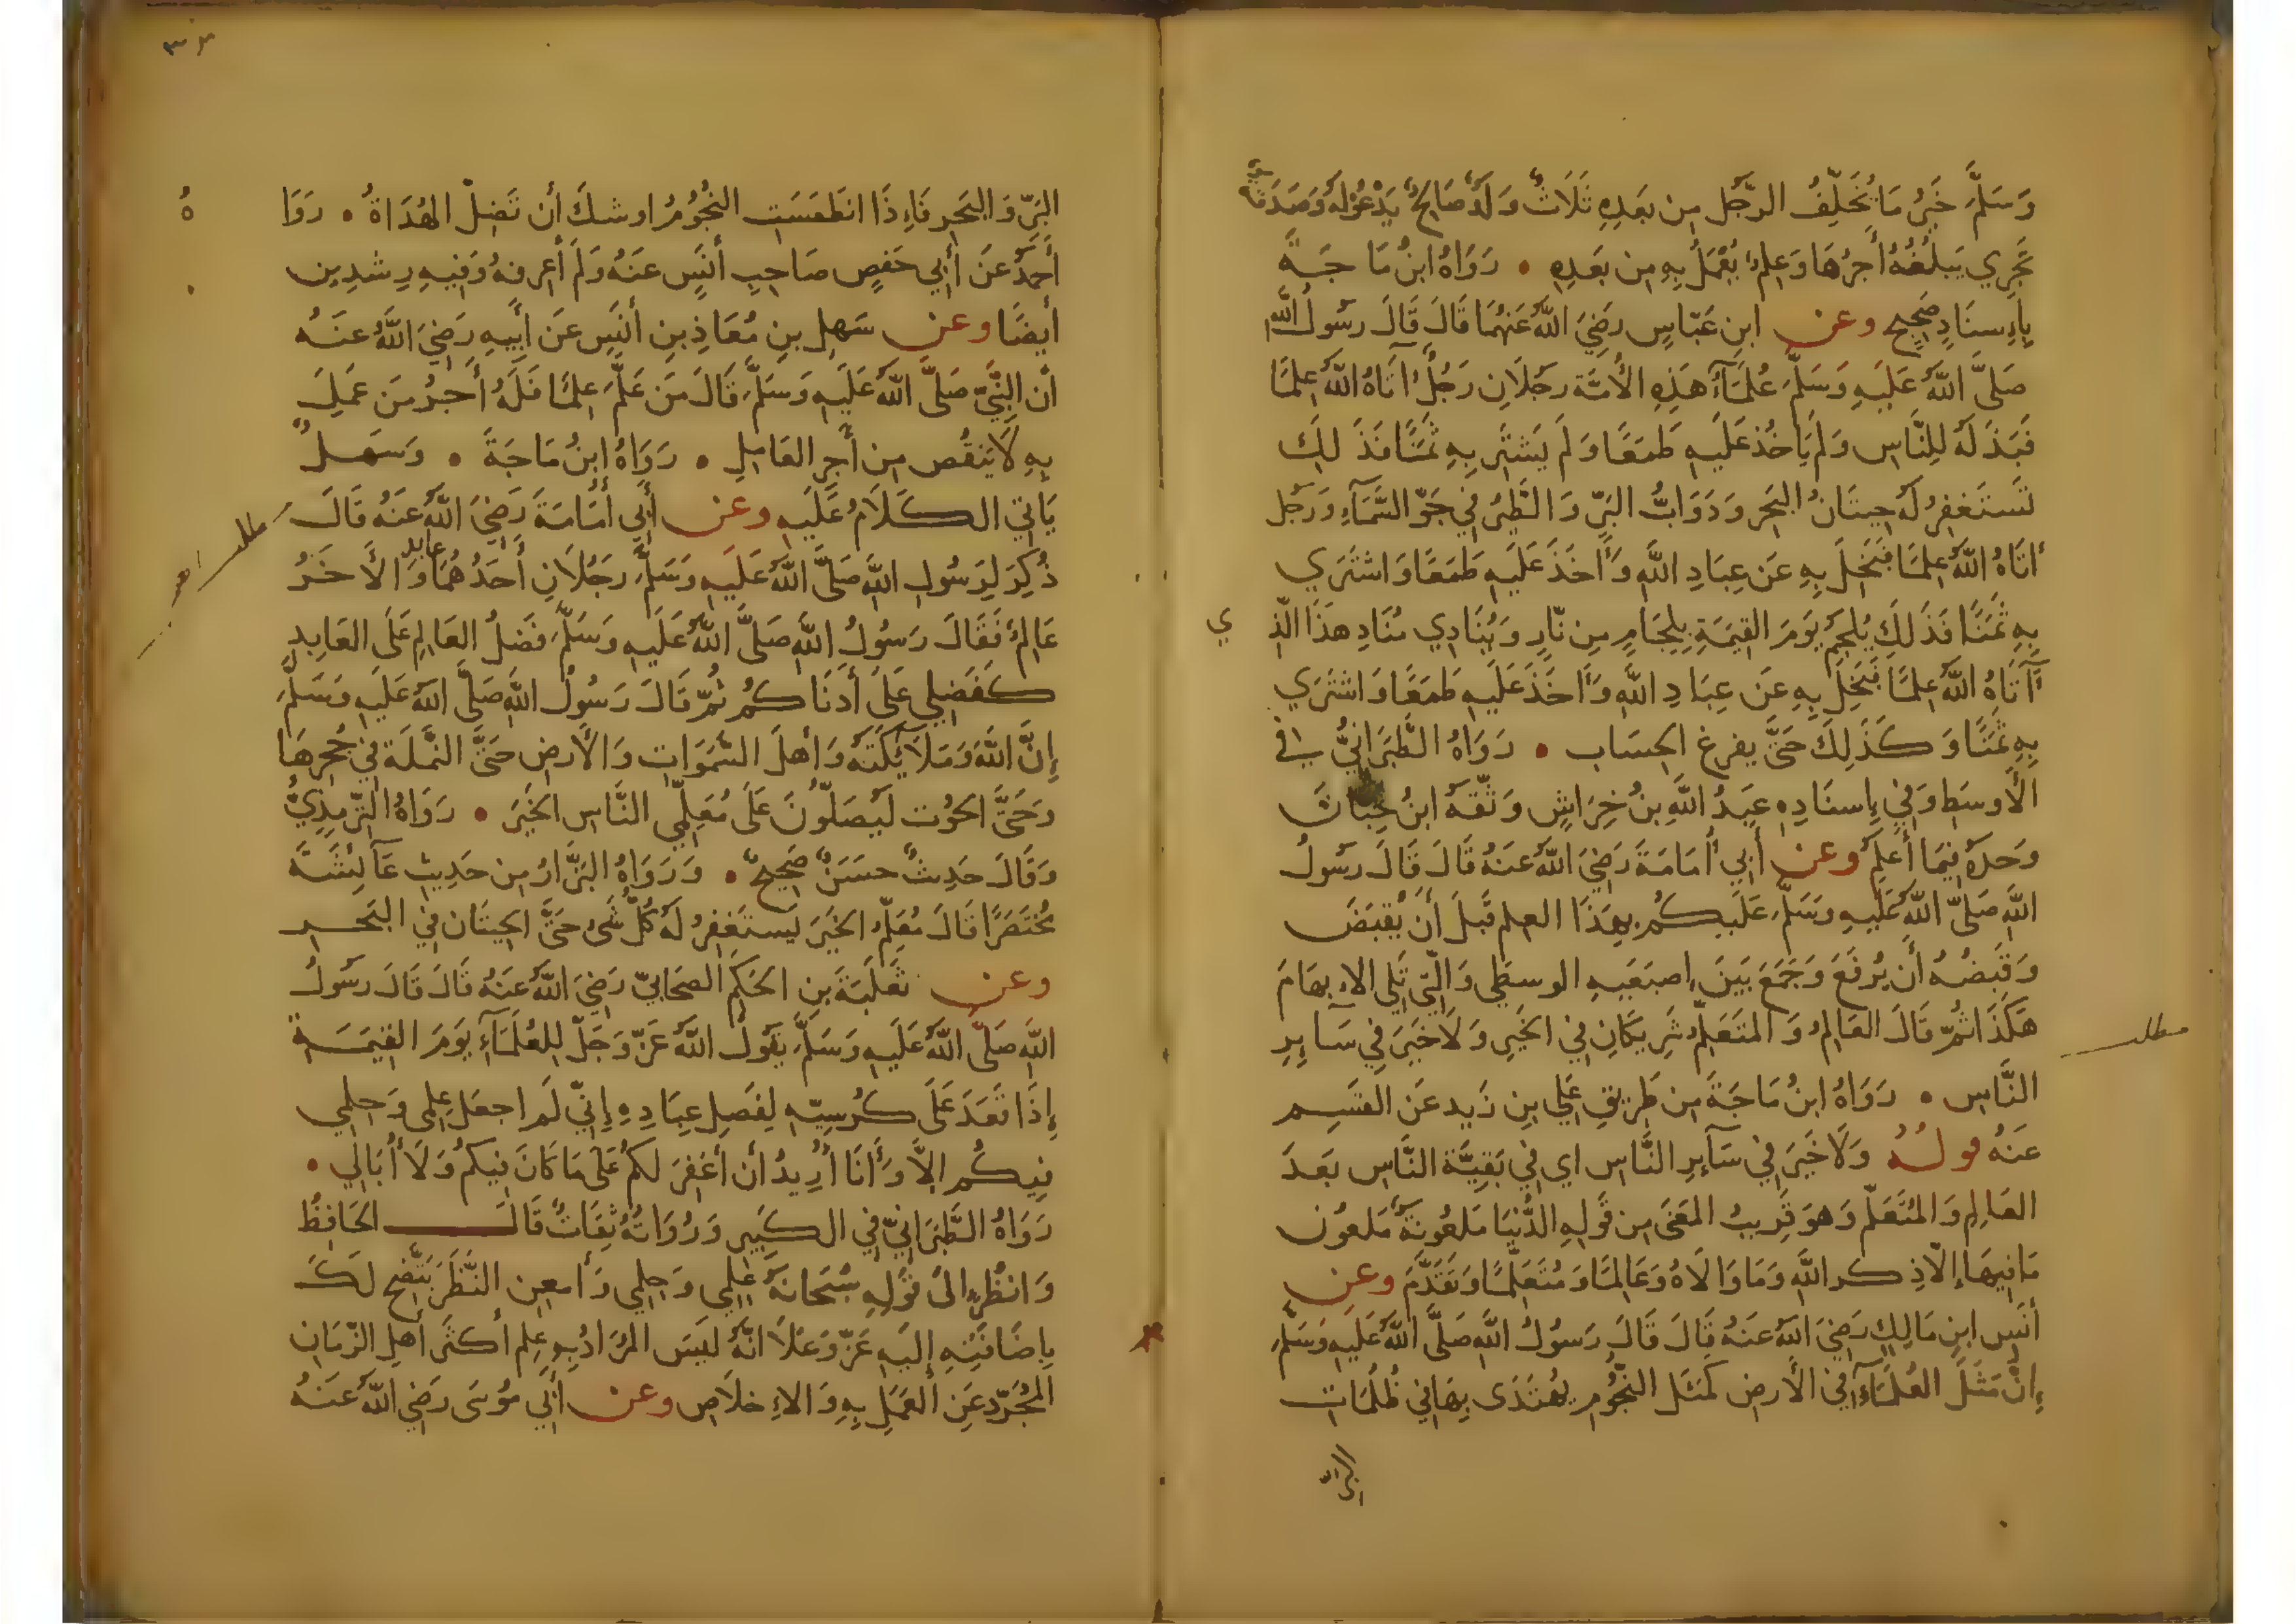 وَسَلَّمَ خَيْرُ مَا يُخَلِّفُ الرَّجُل مِن بَعْدِهِ ثَلَاثٌ وَلَدٌ صَالِحٌ يَدْعُوْ لَهُ وَصَدَقَةٌ
تَجْرِي يَبْلُغُهُ أَجْرُهَا وَعِلْمٌ يُعْمَلُ بِهِ مِن بَعْدِهِ • رَوَاهُ ابنُ مَاجَةَ
بِإِسنَادٍ صَحِيحٍ وعن ابنِ عَبّاسٍ رَضِيَ اللَّهُ عَنْهُمَا قَالَ قَالَ رسُولُ اللَّه
صَلَّى اللَّهُ عَلَيهِ وَسَلَّمَ عُلَمَآءُ هَذِهِ الأُمَّة رجُلَانِ رَجُلٌ آتَاهُ اللَّهُ عِلمًا
فَبَذَلَهُ لِلنَّاسِ وَلَم يَاخُذ عَلَيهِ طَمَعًا وَلَم يَشتَرِ بِهِ ثَمَنًا فَذَلِكَ
تَستَغفِرُ لَهُ حِيتَانُ البَحرِ وَدَوَابُّ البَرِّ وَالطَّيرُ فِي جَوِّ السَّمَآءِ وَرَجُل
أتَاهُ اللَّهُ عِلمًا فَبَخِلَ بِهِ عَن عِبَادِ اللَّهِ وَأَخَذَ عَلَيهِ طَمَعًا وَاشتَرَي
بِهِ ثَمَنًا فَذَلِكَ يُلجَمُ يَومَ القِيمَةِ بِلِجَامٍ مِن نَّارٍ وَيُنَادِي مُنَادٍ هَذَا الَّذِ ي
آتَاهُ اللَّهُ عِلمًا فَبَخِلَ بِهِ عَن عِبَادِ اللَّهِ وَأَخَذَ عَلَيهِ طَمَعًا وَاشتَرَي
بِهِ ثَمَنًا وَكَذَلِكَ حَتَّى يفرغ الحِسَاب • رَوَاهُ الطَّبَرَانِيُّ فِي
الأَوسَطِ وَفِي إِسنَادِهِ عَبدُ اللَّهِ بنُ خِرَاشٍ وَثَّقَهُ ابنُ حِبَّانَ
وَحدَهُ فِيمَا أَعلَمُ وعن أَبِي أُمَامَةَ رَضِيَ اللَّهُ عَنهُ قَالَ قَالَ رسُولُ
اللَّهِ صَلَّى اللَّهُ عَلَيهِ وَسَلَّمَ عَلَيكُم بِهَذَا العِلم قَبلَ أَن يُقبَضَ
وَقَبضُهُ أَن يُرفَعَ وَجَمَعَ بَينَ إِصبَعَيهِ الوسطَي وَالَّتِي تَلِي الإِبهَامَ
هَكَذَا ثُمَّ قَالَ العَالِمُ وَالمتَعَلِّمُ شَرِيكَانِ فِي الخَيرِ وَلَا خَيَرَ فِي سَآيِرِ
النَّاسِ • رَوَاهُ ابنُ مَاجَةَ مِن طَرِيقِ عَلِي بِن زَيد عَن القسِم
عَنهُ قولُهُ وَلَا خَيرَ فِي سَآيِرِ النَّاسِ اي فِي بَقِيَّة النَّاسِ بَعدَ
العَالِمِ وَالمُتَعَلِّم وَهوَ قَرِيبُ المَعنَى مِن قَولِهِ الدُّنيَا مَلعُونَةٌ مَلعُون
مَا فِيهَا إِلّا ذِكر اللَّهِ وَمَا وَالَاهُ وَعَالِمًا وَمُتَعَلِّمًا وَتَقَدَّمَ وعن
أنَسِ ابنِ مَالِكٍ رَضِيَ اللَّهُ عَنهُ قَالَ قَالَ رَسُولُ اللَّهِ صَلَّى اللَّهُ عَلَيهِ وَسَلَّمَ
إِنَّ مَثَلَ العُلَمَآءِ فِي الأَرضِ كَمَثَلِ النّجُومِ يُهتَدَى بِهَا فِي ظُلُمَاتِ
البَرِّ
مطلب
٣٣
البَرِّ وَالبَحرِ فَإِذَا انطَمَسَتِ النُّجُومُ اوشكَ أن تَضِلَّ الهُدَاةُ • رَوَا هُ
أَحمَدُ عَن أَبِي حَفصٍ صَاحِبِ أَنَسٍ عَنهُ وَلَم أَعرِفهُ وَفِيهِ رِشدِين
أَيضًا وعن سَهلِ بنِ مُعَاذِ بنِ أَنَسٍ عَن أَبِيهِ رَضِيَ اللَّهُ عنَهُ
أَن النَّبِيَّ صَلَّى اللَّهُ عَلَيهِ وَسَلَّمَ قَالَ مَن عَلَّمَ عِلمًا فَلَهُ أَجرُ مَن عَمِلَ
بِهِ لَا يَنقُص مِن أَجرِ العَامِلِ • رَوَاهُ ابنُ مَاجَةَ • وَسَهلٌ
يَاتِي الكَلَامُ عَلَيهِ وعن أَبِي أُمَامَةَ رَضِيَ اللَّهُ عَنهُ قَالَ
مطلب
ذُكِرَ لِرَسُولِ اللَّهِ صَلَّى اللَّهُ عَلَيهِ وَسَلَّمَ رَجُلَانِ أَحَدُهُمَا عابد وَالآخَرُ
عَالِمٌ فَقَالَ رَسُولُ اللَّهِ صَلَّى اللَّهُ عَلَيهِ وَسَلَّمَ فَضلُ العَالِمِ عَلَى العَابِدِ
كَفَضلِي عَلَى أَدنَاكُم ثُمَّ قَالَ رَسُولُ اللَّهِ صَلَّى اللَّهُ عَلَيهِ وَسَلَّمَ
إِنَّ اللَّهَ وَمَلَآئِكَتَهُ وَأَهلَ السَّمَوَاتِ وَالأَرضِ حَتَّى النَّملَة فِي جُحرِهَا
وَحَتَّى الحُوت لَيُصَلُّونَ عَلَى مُعَلِّمِي النَّاسِ الخَيرَ • رَوَاهُ التِّرمِذِيُّ
وَقَالَ حَدِيثٌ حسَنٌ صَحِيحٌ • وَرَوَاهُ البَزَّارُ مِن حَدِيثِ عَآئِشَةَ
مُختَصَرًا قَالَ مُعَلِّمُ الخَيرَ يَستَغفِرُ لَهُ كُلُّ شَىءٍ حَتَّى الحِيتَان فِي البَحرِ
وعن ثَعلَبَةَ بنِ الحَكَمِ الصَحَابِيّ رَضِيَ اللَّهُ عَنهُ قَالَ قَالَ رَسُولُ
اللَّهِ صَلَّى اللَّهُ عَلَيهِ وَسَلَّمَ يَقُولُ اللَّهُ عَزَّ وَجَلَّ لِلعُلَمَآءِ يَومَ القِيمَةِ
إِذَا قَعَدَ عَلَى كُرسِيِّهِ لِفَصلِ عِبَادِهِ إِنِّي لَم اجعَل عِلمِى وَحِلمِي
فِيكُم الّا وَأَنَا أُرِيدُ أَن أَغفِرَ لَكُم عَلَى مَا كَانَ فِيكُم وَلَا أُبَالِي •
رَوَاهُ الطَّبَرَانِيّ فِي الكَبِيرِ وَرُوَاتُهُ ثِقَاتٌ قَالَ الحَافِظُ
وَانظُر إِلَى قَولِهِ سُبحَانَهُ عِلمِي وَحِلمِي وَأَمعِن النَّظَرَ يَتَّضِح لَكَ
بِإِضَافَتِهِ إِلَيهِ عَزَّ وَعَلَا انَّهُ لَيسَ المُرَادُ بِهِ عِلم أَكثَر أَهلِ الزَّمَانِ
المُجَرَّد عَنِ العَمَلِ بِهِ وَالإِخلَاصِ وعن أَبِي مُوسَى رَضِيَ اللَّهُ عَنهُ